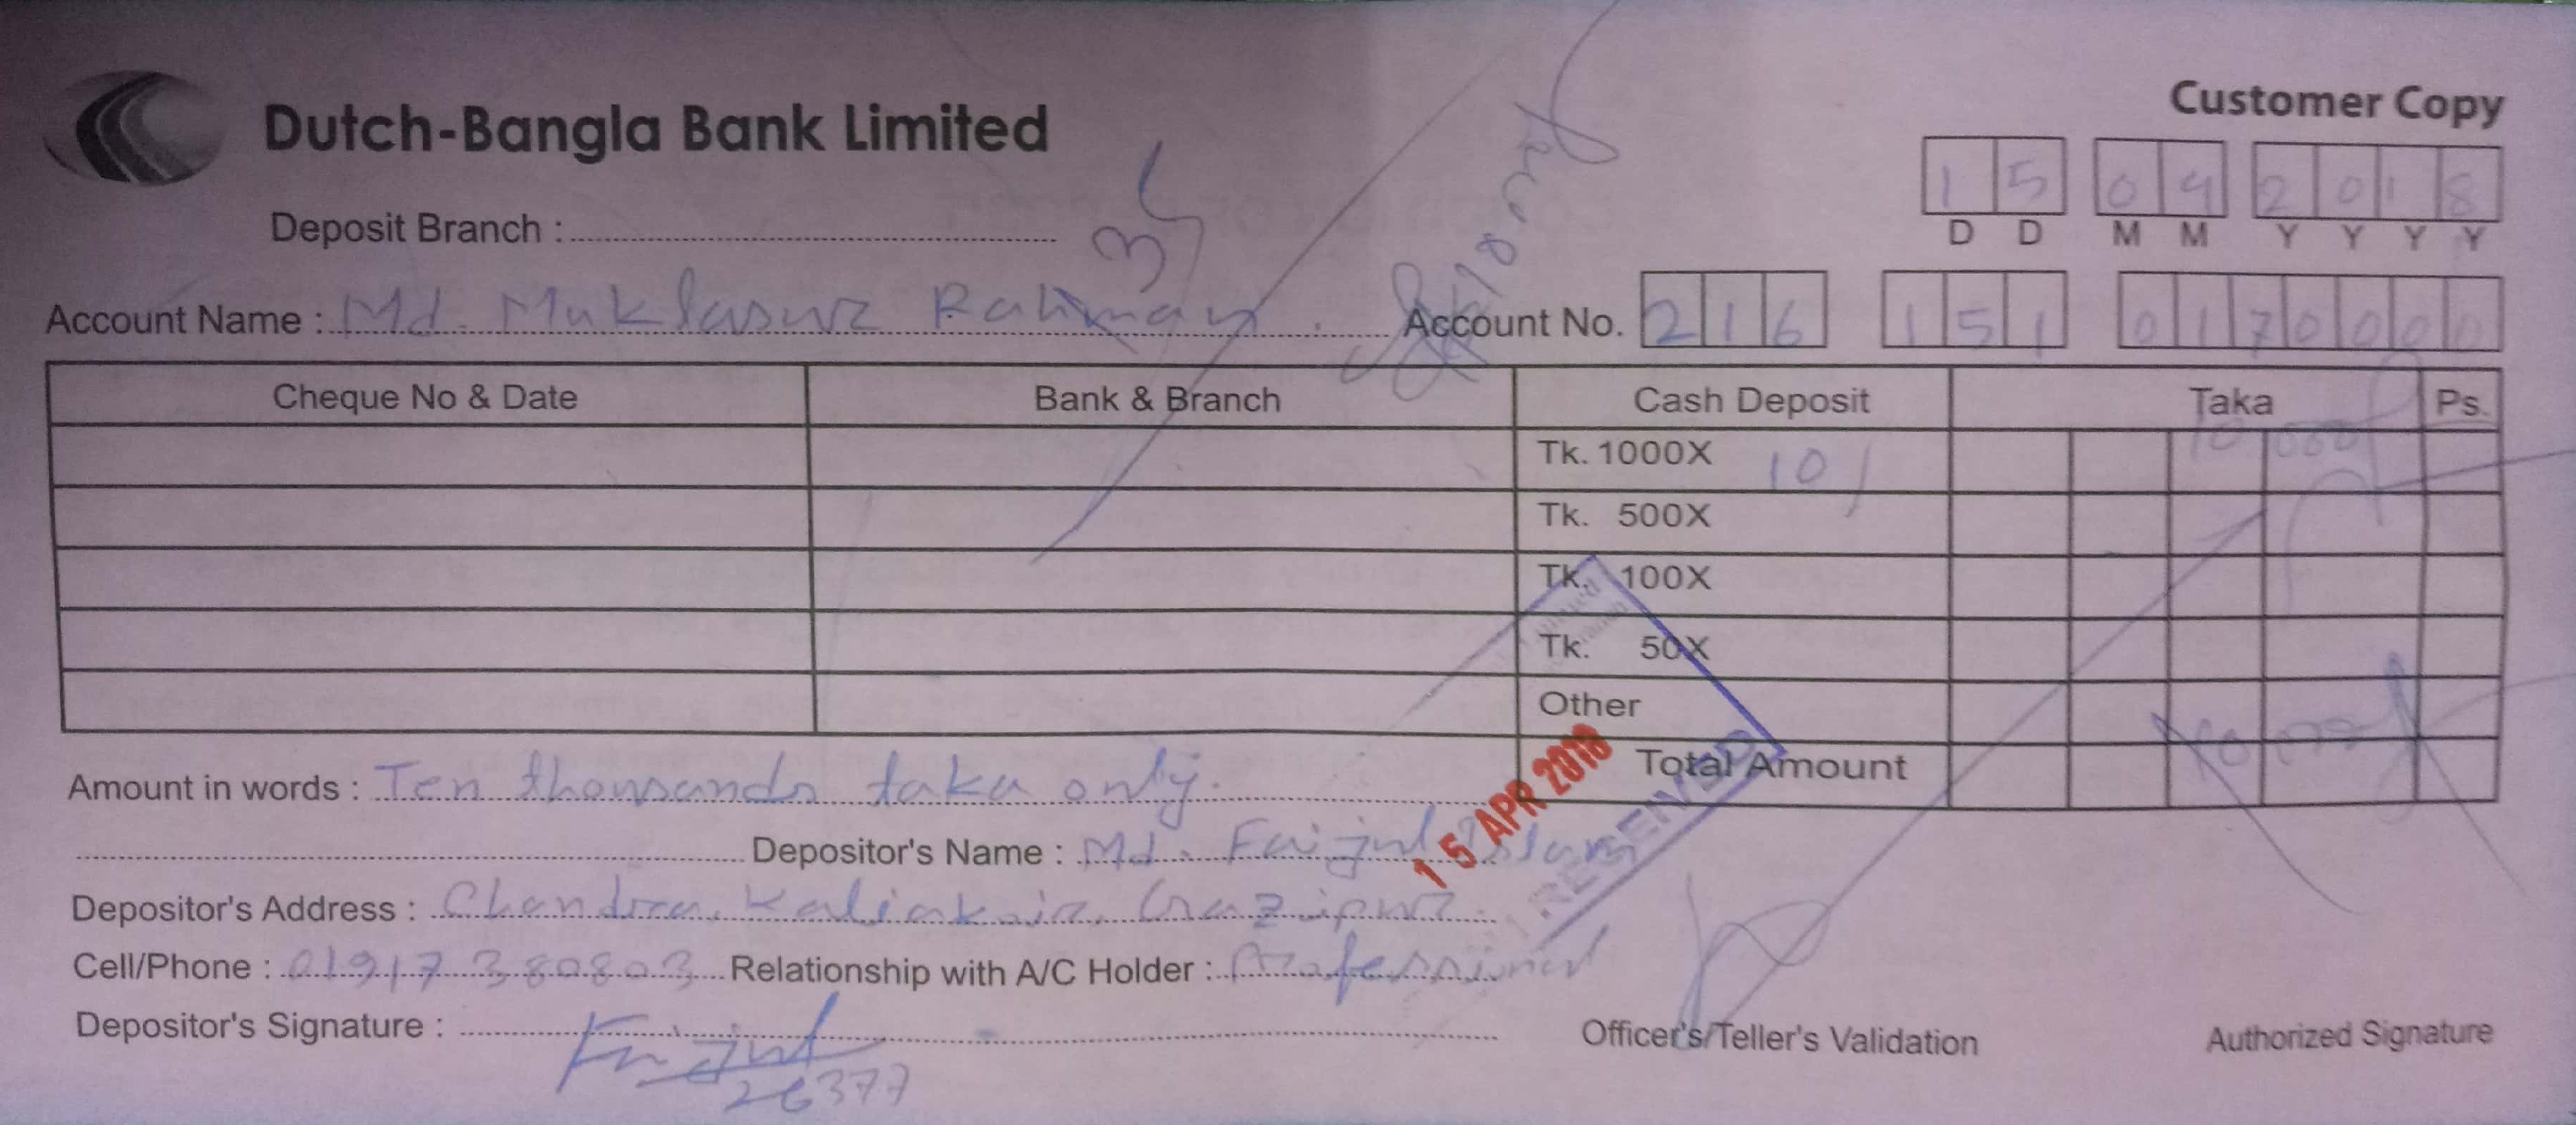 Dutch-Bangla Bank Limited
Customer Copy
15 04 2018
D D M M Y Y Y Y
Deposit Branch :
Account Name : Md. Muklasur Rahman Account No. 216 151 0170000
Cheque No & Date Bank & Branch Cash Deposit Taka Ps.
Tk. 1000X 10/ 10,000/
Tk. 500X
Tk. 100X
Tk. 50X
Other
Total Amount 10,000/
Amount in words : Ten thousands taka only.
15 APR 2018
RECEIVED
Depositor's Name : Md. Faijul Islam
Depositor's Address : Chandra, Kaliakair, Gazipur.
Cell/Phone : 01917380803 Relationship with A/C Holder : Professional
Depositor's Signature : Faijul
26377
Officer's/Teller's Validation Authorized Signature